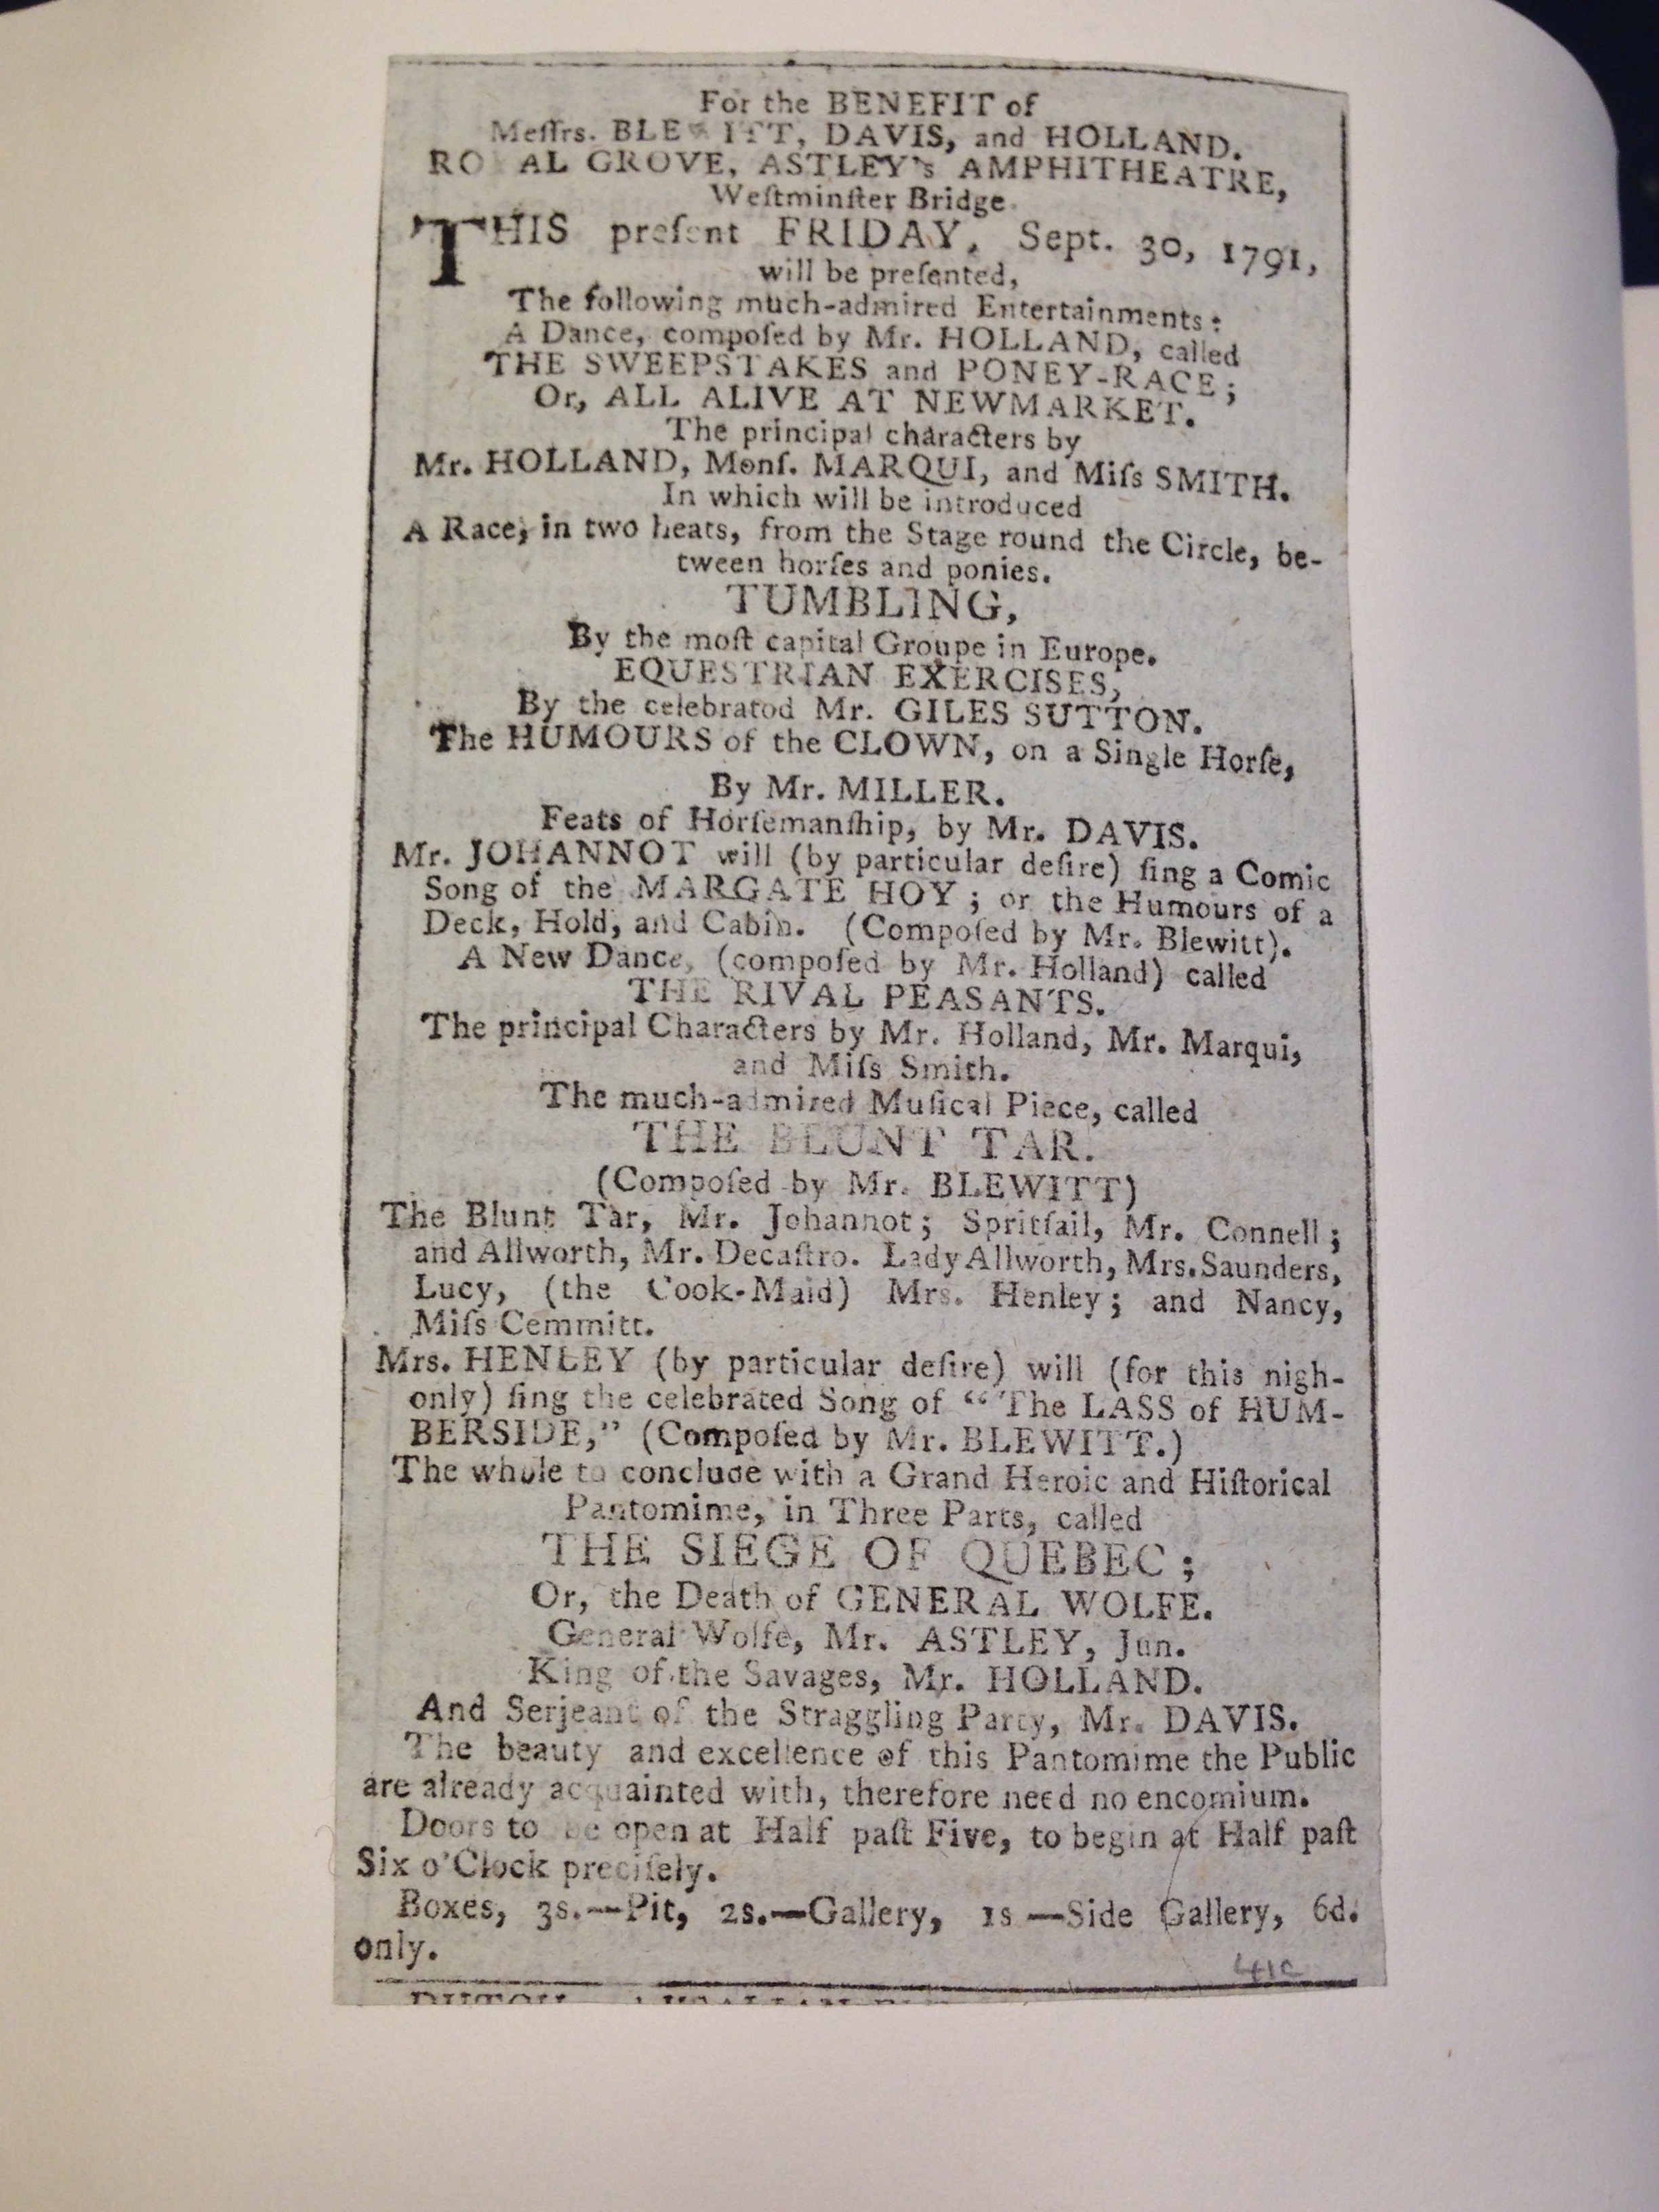 For the BENEFIT of
Meſſrs. BLEWITT, DAVIS, and HOLLAND.
ROYAL GROVE, ASTLEY's AMPHITHEATRE,
Weſtminſter Bridge.
THIS preſent FRIDAY, Sept. 30, 1791,
will be preſented,
The following much-admired Entertainments:
A Dance, compoſed by Mr. HOLLAND, called
THE SWEEPSTAKES and PONEY-RACE;
Or, ALL ALIVE AT NEWMARKET.
The principal characters by
Mr. HOLLAND, Monſ. MARQUI, and Miſs SMITH.
In which will be introduced
A Race, in two heats, from the Stage round the Circle, be-
tween horſes and ponies.
TUMBLING,
By the moſt capital Groupe in Europe.
EQUESTRIAN EXERCISES,
By the celebratod Mr. GILES SUTTON.
The HUMOURS of the CLOWN, on a Single Horſe,
By Mr. MILLER.
Feats of Horſemanſhip, by Mr. DAVIS.
Mr. JOHANNOT will (by particular deſire) ſing a Comic
Song of the MARGATE HOY; or the Humours of a
Deck, Hold, and Cabin. (Compoſed by Mr. Blewitt).
A New Dance, (compoſed by Mr. Holland) called
THE RIVAL PEASANTS.
The principal Characters by Mr. Holland, Mr. Marqui,
and Miſs Smith.
The much-admired Muſical Piece, called
THE BLUNT TAR.
(Compoſed by Mr. BLEWITT)
The Blunt Tar, Mr. Johannot; Spritſail, Mr. Connell;
and Allworth, Mr. Decaſtro. Lady Allworth, Mrs. Saunders,
Lucy, (the Cook-Maid) Mrs. Henley; and Nancy,
Miſs Cemmitt.
Mrs. HENLEY (by particular deſire) will (for this nigh-
only) ſing the celebrated Song of “The LASS of HUM-
BERSIDE,” (Compoſed by Mr. BLEWITT.)
The whole to conclude with a Grand Heroic and Hiſtorical
Pantomime, in Three Parts, called
THE SIEGE OF QUEBEC;
Or, the Death of GENERAL WOLFE.
General Wolfe, Mr. ASTLEY, Jun.
King of the Savages, Mr. HOLLAND.
And Serjeant of the Straggling Party, Mr. DAVIS.
The beauty and excellence of this Pantomime the Public
are already acquainted with, therefore need no encomium.
Doors to be open at Half paſt Five, to begin at Half paſt
Six o'Clock preciſely.
Boxes, 3s.—Pit, 2s.—Gallery, 1s—Side Gallery, 6d.
only.